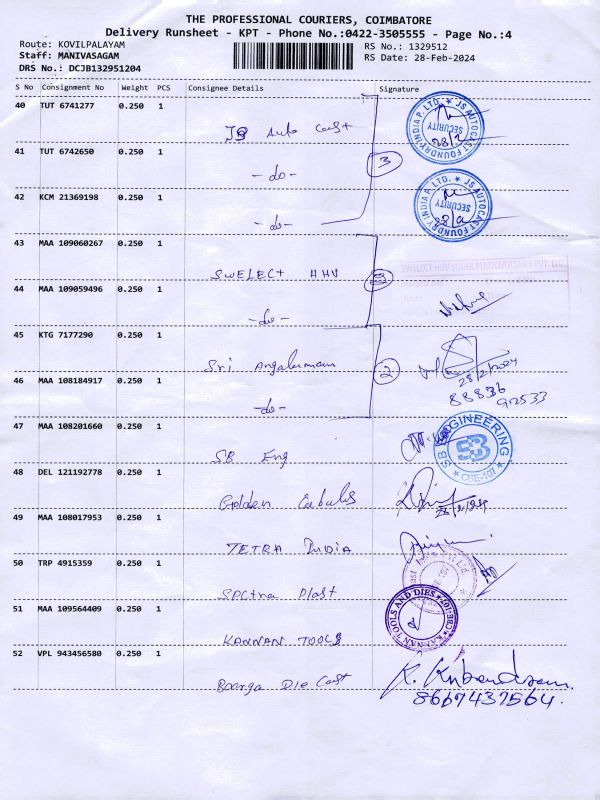 THE PROFESSIONAL COURIERS, COIMBATORE
Delivery Runsheet - KPT - Phone No.:0422-3505555 - Page No.:4
Route: KOVILPALAYAM RS No.: 1329512
Staff: MANIVASAGAM RS Date: 28-Feb-2024
DRS No.: DCJB132951204
S No Consignment No Weight PCS Consignee Details Signature
40 TUT 6741277 0.250 1
JS Auto Cast
JS AUTOCAST FOUNDRY INDIA P. LTD. SECURITY
41 TUT 6742650 0.250 1
-do- 3
42 KCM 21369198 0.250 1
-do-
JS AUTOCAST FOUNDRY INDIA P. LTD. SECURITY
43 MAA 109060267 0.250 1
SWELECT HHV
SWELECT HHV SOLAR PHOTOVOLTAICS PVT. LTD.
44 MAA 109059496 0.250 1
-do-
45 KTG 7177290 0.250 1
Sri Angalamman 2
28/2/2024
46 MAA 108184917 0.250 1
88836
92533
-do-
47 MAA 108201660 0.250 1
SB Eng
SB ENGINEERING CBE-107
48 DEL 121192778 0.250 1
Golden
49 MAA 108017953 0.250 1
TETRA INDIA
50 TRP 4915359 0.250 1
Spectra Plast
51 MAA 109564409 0.250 1
KANNAN TOOLS
KANNAN TOOLS AND DIES
52 VPL 943456580 0.250 1
Die Cast
8667437564.